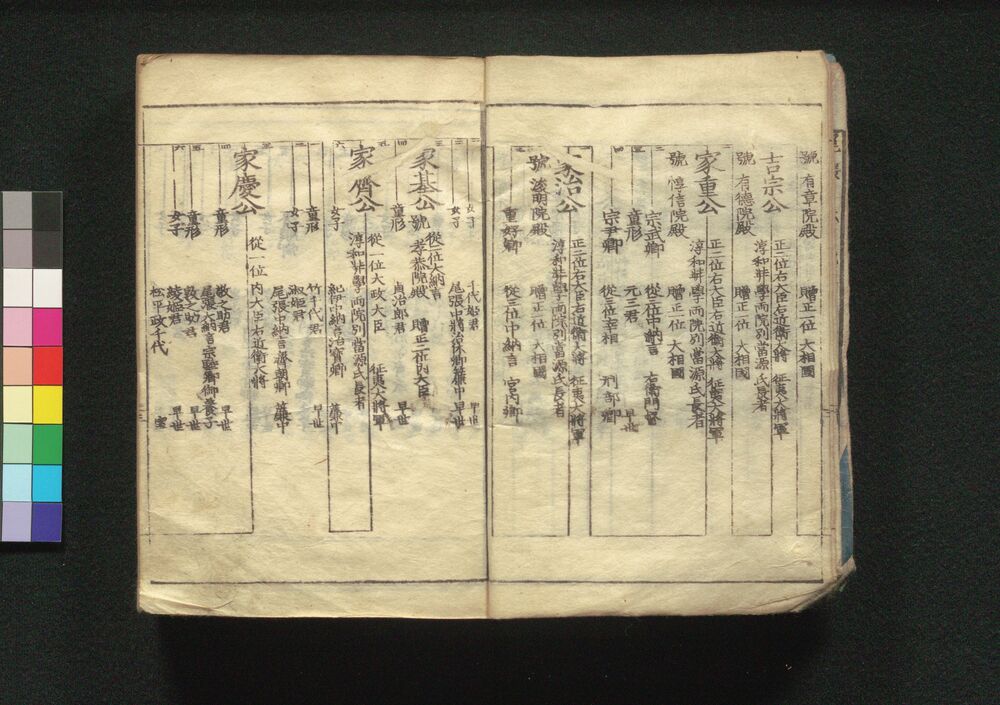 號 有章院殿 贈正一位 大相國
吉宗公 正二位右大臣右近衛大將 征夷大將軍
淳和弉學両院別當源氏長者
號 有德院殿 贈正一位 大相國
家重公 正二位右大臣右近衛大將 征夷大將軍
淳和弉學両院別當源氏長者
號 惇信院殿 贈正一位 大相國
三 宗武卿 從三位中納言 右衛門督
童形 元三君 早世
四 宗尹卿 從三位宰相 刑部卿
家治公 正二位右大臣右近衛大將 征夷大將軍
淳和弉學両院別當源氏長者
號 浚明院殿 贈正一位 大相國
二 重好卿 從三位中納言 宮内卿
女子 千代姫君 早世
女子 尾張中將治休卿簾中 早世
家基公 從二位大納言
號 孝恭院殿 贈正二位内大臣
四 童形 貞治郎君 早世
家齊公 從一位大政大臣 征夷大將軍
淳和弉學両院別當源氏長者
六 女子 紀伊中納言治寶卿 簾中
童形 竹千代君 早世
女子 淑姫君
尾張中納言齊朝卿 簾中
家慶公 從一位 内大臣右近衛大將
四 童形 敬之助君 早世
尾張大納言宗睦卿御養子
五 童形 敦之助君 早世
六 女子 綾姫君 早世
松平政千代 室